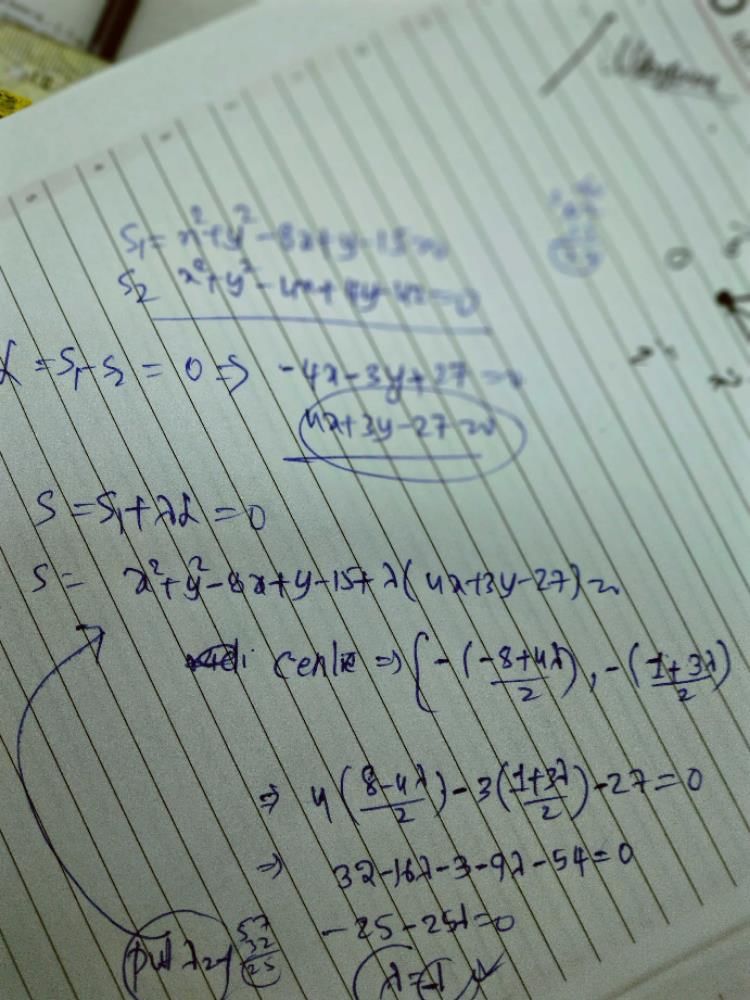 S₁ = x²+y²-8x+y-15=0
S₂ x²+y²-4x+4y-42=0
L = S₁-S₂ = 0 ⇒ -4x-3y+27=0
4x+3y-27=0
S = S₁+λL = 0
S = x²+y²-8x+y-15+λ(4x+3y-27)=
centre ⇒ (-(-8+4λ)/2), -(1+3λ)/2)
⇒ 4(8-4λ/2)-3(1+3λ/2)-27=0
⇒ 32-16λ-3-9λ-54=0
57
32
25
-25-25λ=0
put λ=-1
λ=-1